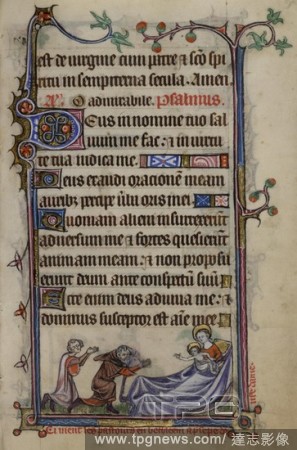 est de uirgine cum patre & sco spi
ritu in sempiterna secula. Amen
O admirabile. Psalmus.
Deus in nomine tuo sal
uum me fac: & in uirtu
te tua iudica me.
Deus exaudi orationem meam
auribus percipe uerba oris mei
Quoniam alieni insurrexerunt
aduersum me & fortes quesierunt
animam meam: & non proposu
erunt deum ante conspectum suum
Ecce enim deus adiuua me: &
dominus susceptor est aie mee
TPG
www.tpgnews.com/達志影像